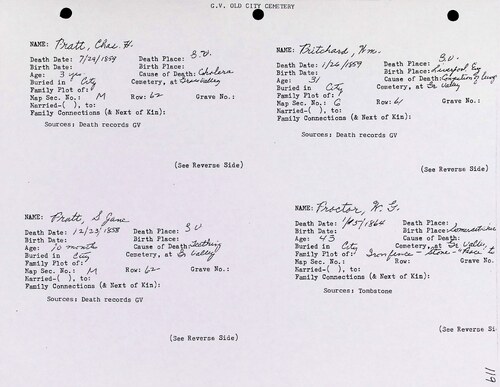 G.V. OLD CITY CEMETERY
NAME: Pratt, Chas. H.
Death Date: 7/29/1859 Death Place: G.V.
Birth Date: Birth Place:
Age: 3 yrs Cause of Death: Cholera
Buried in City Cemetery, at Grass Valley
Family Plot of:
Map Sec. No.: M Row: 62 Grave No.:
Married-( ), to:
Family Connections (& Next of Kin):
Sources: Death records GV
(See Reverse Side)
NAME: Pritchard, Wm.
Death Date: 1/26/1859 Death Place: G.V.
Birth Date: Birth Place: Liverpool Eng
Age: 31 Cause of Death: Congestion of lung
Buried in City Cemetery, at Gr Valley
Family Plot of:
Map Sec. No.: G Row: 61 Grave No.:
Married-( ), to:
Family Connections (& Next of Kin):
Sources: Death records GV
(See Reverse Side)
NAME: Pratt, S Jane
Death Date: 12/23/1858 Death Place: G V
Birth Date: Birth Place:
Age: 10 months Cause of Death: Teething
Buried in City Cemetery, at Gr Valley
Family Plot of:
Map Sec. No.: M Row: 62 Grave No.:
Married-( ), to:
Family Connections (& Next of Kin):
Sources: Death records GV
(See Reverse Side)
NAME: Proctor, W. G.
Death Date: /1864 Death Place:
Birth Date: Birth Place:
Age: 43 Cause of Death:
Buried in City Cemetery, at Gr Valley
Family Plot of: Iron fence - Stone - "Peace to
Map Sec. No.: Row: Grave No.
Married-( ), to:
Family Connections (& Next of Kin):
Sources: Tombstone
(See Reverse Si
119